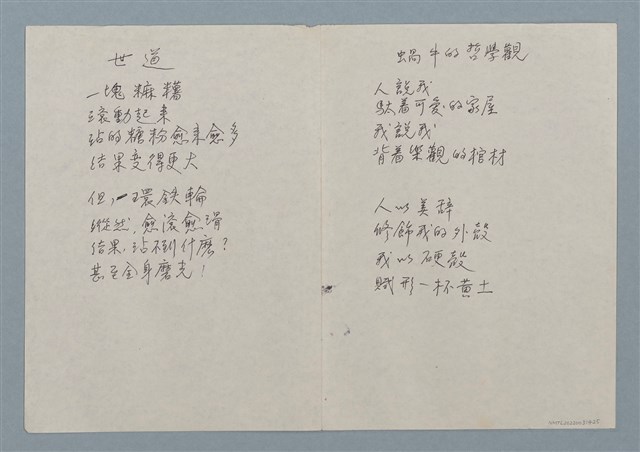 世道
一塊麻糬
滾動起來
沾的糖粉愈來愈多
結果變得更大
但,一環鉄輪
縱然,愈滾愈滑
結果,沾不到什麽?
甚至全身磨光!
蝸牛的哲學觀
人說我
馱着可愛的家屋
我說我
背着樂觀的棺材
人以美辞
修飾我的外殼
我以硬殼
賦形一杯黄土